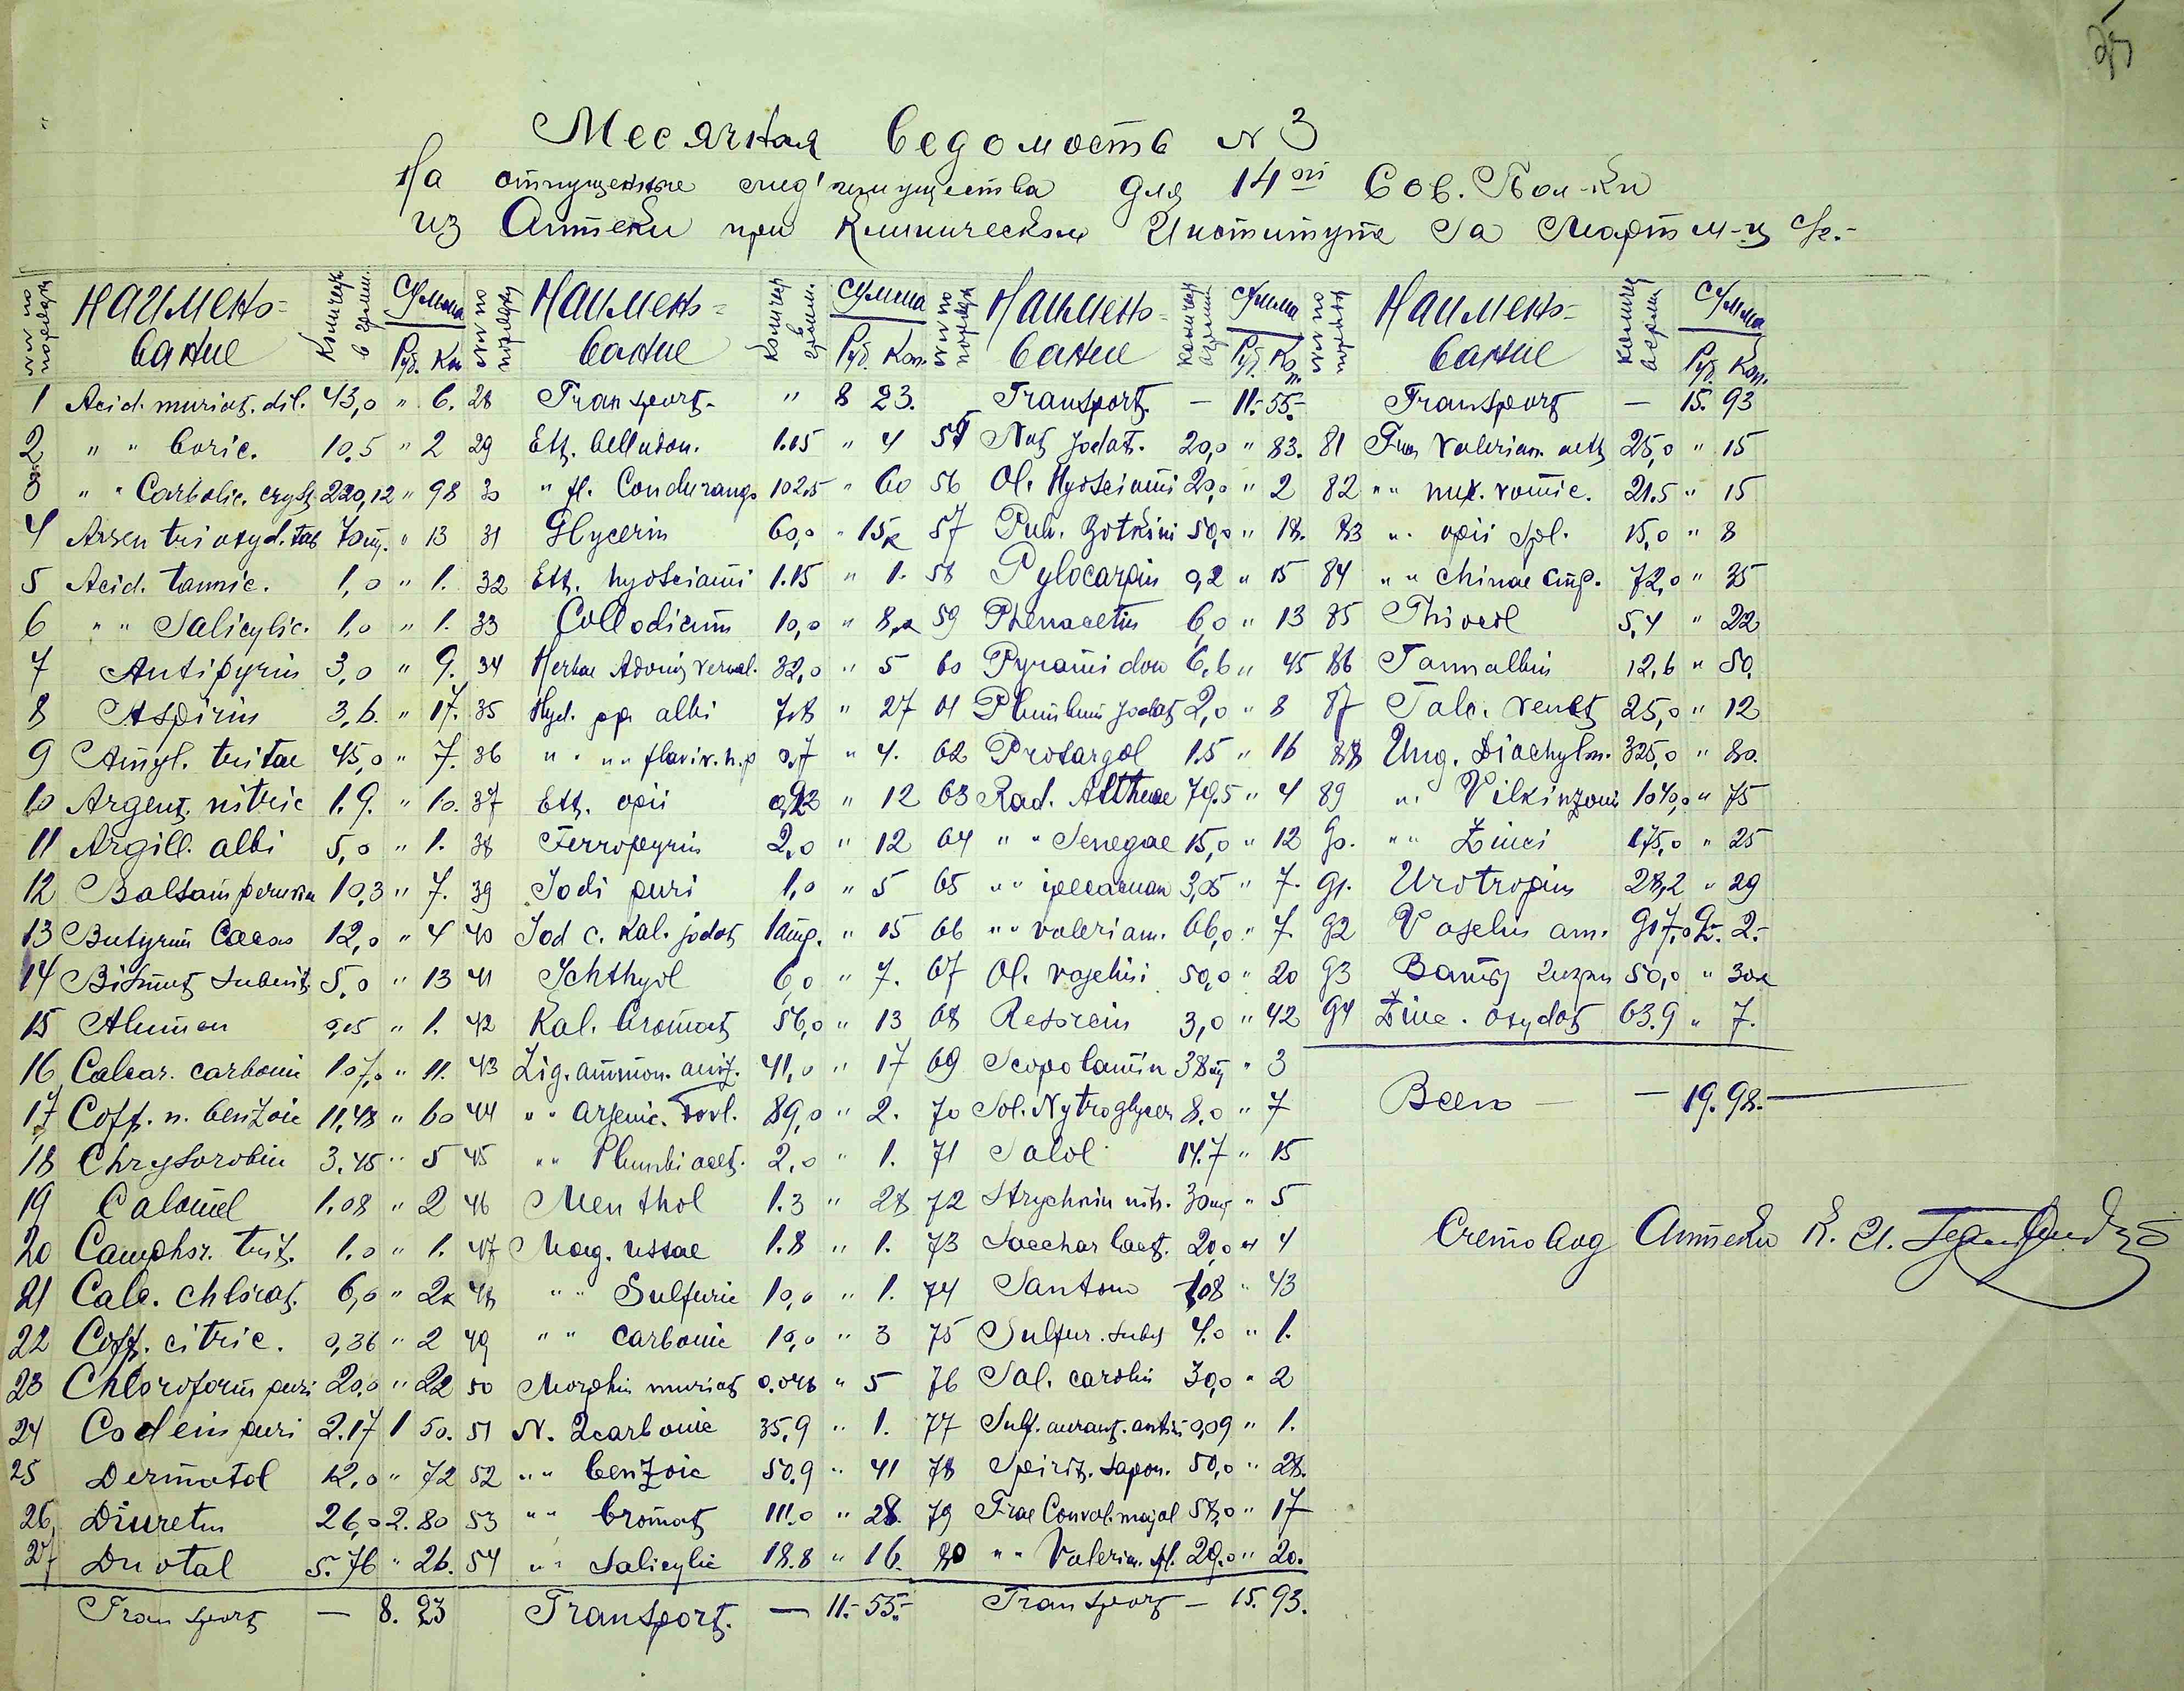 Месячная Ведомость N 3
На отпущенные мед' имущества для 14ой Сов. Пол-ки
из Аптеки при Клиническом Институте За Март м-ц
№№ по порядку Наименование Количест. в грам. Сумма Руб. Коп. №№ по порядку Наименование Количест. в грам. Сумма Руб. Коп. №№ по порядку Наименование Количест. в грам. Сумма Руб. Коп. №№ по порядку Наименование Количест. в грам. Сумма Руб. Коп.
1 Acid. muriat. dil. 43,0 " 6. 28 Transport. " 8 23. Transport. — 11.-55.- Transport — 15. 93
2 " " boric. 10.5 " 2 29 Ext. belladon. 1.15 " 4 55 Nat jodat. 20,0 " 83. 81 Valerian aeth 25,0 " 15
3 " " Carbolic. cryst. 220,12 " 98 30 " fl. Condurango 102.5 " 60 56 Ol. Hyosciami 20,0 " 2 82 " " nux. vomic. 21.5 " 15
4 Arsen trioxyd. tab 70 " 13 31 Glycerin 60,0 " 15к 57 Pulv. Botkini 50,0 " 18. 83 " " opii spl. 15,0 " 8
5 Acid. tannic. 1,0 " 1. 32 Ext. hyosciami 1.15 " 1. 58 Pylocarpin 0,2 " 15 84 " " Chinae Cmp. 72,0 " 35
6 " " Salicylic. 1,0 " 1. 33 Collodium 10,0 " 8к 59 Phenacetin 6,0 " 13 85 Thiocol 5,4 " 22
7 Antipyrin 3,0 " 9. 34 Herbae Adonis vernal. 32,0 " 5 60 Pyramidon 6,6 " 45 86 Tannalbin 12,6 " 50.
8 Aspirin 3,6. " 17. 35 Hyd. pp. albi 7,8 " 27 61 Plumbum jodat 2,0 " 8 87 Talc. venet 25,0 " 12
9 Amyl. tritae 45,0 " 7. 36 " " " " flavi v. h. p 0,7 " 4. 62 Protargol 1.5 " 16 88 Ung. Diachylon. 325,0 " 80.
10 Argent. nitric 1.9. " 10. 37 Ext. opii 0,93 " 12 63 Rad. Altheae 79.5 " 4 89 " " Vilkinzoni 1040,0 " 75
11 Argill. albi 5,0 " 1. 38 Ferropyrin 2,0 " 12 64 " " Senegae 15,0 " 12 90. " " Zinci 175,0 " 25
12 Balsam peruvian 10,3 " 7. 39 Jodi puri 1,0 " 5 65 " " ipecacuan 3,05 " 7. 91. Urotropin 28,2 " 29
13 Butyrum Cacao 12,0 " 4 40 Jod c. Kal. jodat 1 amp. " 15 66 " " valerian. 66,0 " 7. 92 Vaselin am. 917,0 2.- 2.-
14 Bismut subnit. 5,0 " 13 41 Ichthyol 6,0 " 7. 67 Ol. vaselini 50,0 " 20 93 50,0 " 30к
15 Alumen 0,05 " 1. 42 Kal. bromat 56,0 " 13 68 Resorcin 3,0 " 42 94 Zinc. oxydat 63.9 " 7.
16 Calcar. carbonic 107,0 " 11. 43 Liq. ammon. anis. 41,0 " 17 69 Scopolamin 38 mg " 3
17 Coff. n. benzoic 11,48 " 60 44 " " arsenic. Fovl. 89,0 " 2. 70 Sol. Nytroglycer 8.0 " 7 Всего — — 19. 98.—
18 Chrysorobin 3.45 " 5 45 " " Plumbi acet. 2,0 " 1. 71 Salol 14.7 " 15
19 Calomel 1.08 " 2 46 Menthol 1.3 " 28 72 Strychnin nitr. 30 mg " 5
20 Camphor. trit. 1.0 " 1. 47 Mag. ustae 1.8 " 1. 73 Sacchar lact. 20,0 " 4 Счетовод Аптеки К. И.
21 Calc. chlorat. 6,0 " 2к 48 " " Sulfuric 10,0 " 1. 74 Santon 1,08 " 43
22 Coff. citric. 0,36 " 2 49 " " carbonic 10,0 " 3 75 Sulfur. subl 4.0 " 1.
23 Chloroform puri 20,0 " 22 50 Morphin muriat 0.048 " 5 76 Sal. carolin 30,0 " 2
24 Codein puri 2.17 1 50. 51 N. 2carbonic 35.9 " 1. 77 Sulf. aurant. antim 0,09 " 1.
25 Dermatol 12,0 " 72 52 " " benzoic 50.9 " 41 78 Spirit. sapon. 50,0 " 28.
26. Diuretin 26,0 2. 80 53 " " bromat 111.0 " 28. 79 Trae Conval. majal 58,0 " 17
27 Duotal 5.76 " 26. 54 " " Salicylic 18.8 " 16. 80 " " Valerian. spl. 29.0 " 20.
Transport — 8. 23 Transport. — 11.-55.- Transport — 15. 93.